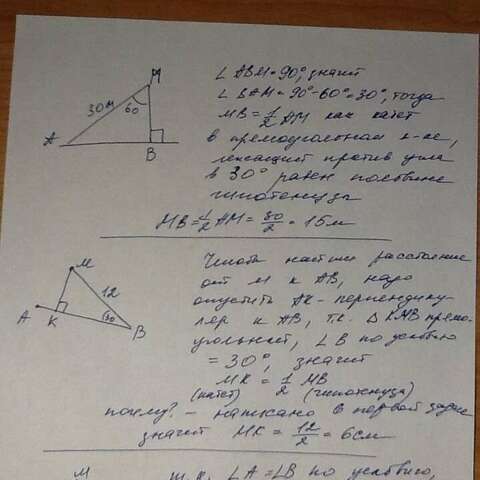 ∠ ABM = 90°, значит
∠ BAM = 90° - 60° = 30°, тогда
MB = 1/2 AM как катет
в прямоугольном к-ке,
лежащий против угла
в 30° равен половине
гипотенузы
MB = 1/2 AM = 30/2 = 15м
M
30м
60
A
B
Чтобы найти расстояние
от M к AB, надо
опустить AK - перпендику
ляр к AB, т.к. Δ KMB прямо-
угольный, ∠B по условию
= 30°, значит
MK = 1/2 MB
(катет) (гипотенуза)
почему? - написано в первой задаче
значит MK = 12/2 = 6см
M
12
A
K
30
B
M
т.к. ∠A = ∠B по условию,